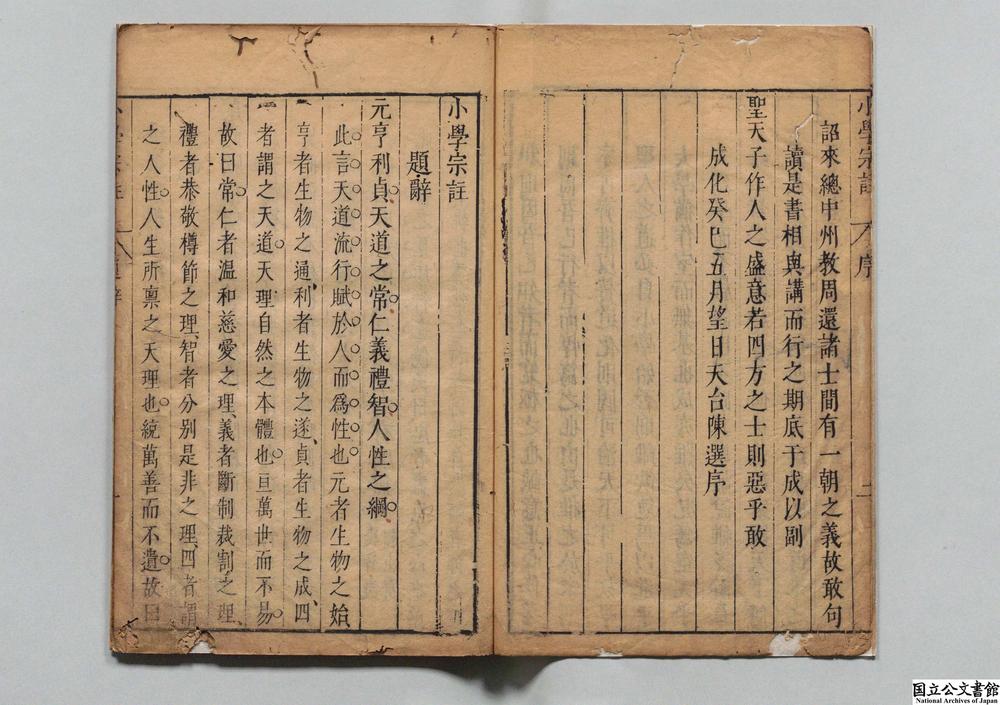 小學宗註 序 二
詔來總中州教周還諸士間有一朝之義故敢句
讀是書相與講而行之期底于成以副
聖天子作人之盛意若四方之士則惡乎敢
成化癸巳五月望日天台陳選序
小學宗註
題辭
元亨利貞天道之常仁義禮智人性之綱
此言天道流行賦於人而爲性也元者生物之始
亨者生物之通利者生物之遂貞者生物之成四
者謂之天道天理自然之本體也亘萬世而不易
故曰常仁者溫和慈愛之理義者斷制裁割之理
禮者恭敬樽節之理智者分別是非之理四者謂
之人性人生所禀之天理也統萬善而不遺故曰
一
国立公文書館
National Archives of Japan